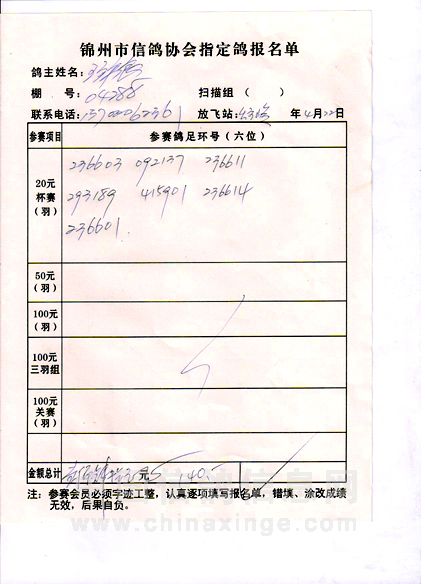 锦州市信鸽协会指定鸽报名单
鸽主姓名:
棚 号: 04288 扫描组 ( )
联系电话: 放飞站: 年4月22日
参赛项目 参赛鸽足环号(六位)
20元
杯赛
(羽)
236603 092137 236611
293189 415901 236614
236601.
50元
(羽)
100元
(羽)
100元
三羽组
100元
关赛
(羽)
金额总计 元 140.
注: 参赛会员必须字迹工整, 认真逐项填写报名单, 错填、涂改成绩
无效, 后果自负。
www.chinaxinge.com